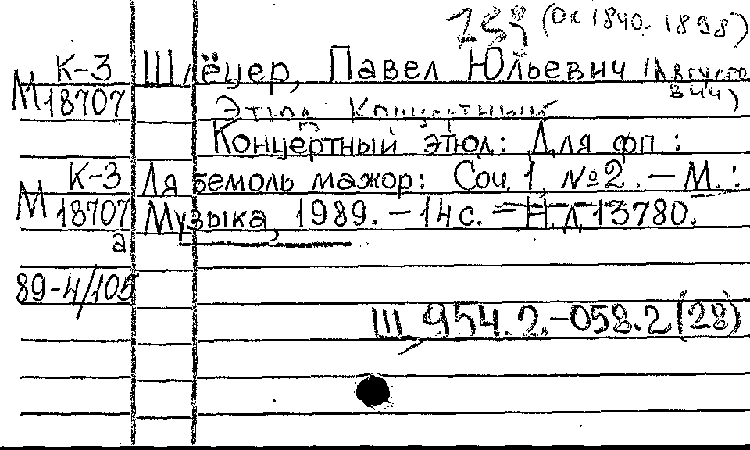 (ок 1840. 1898)
К-3 Шлёцер, Павел Юльевич (Августо
М 18707 вич)
Этюд Концертный
Концертный этюд: Для фп:
К-3 Ля бемоль мажор: Соч. 1, №2. – М.:
М 18707 Музыка, 1989. – 14 с. – Н.д. 13780.
а
89-4/105
Ш 954.2.-058.2(28)